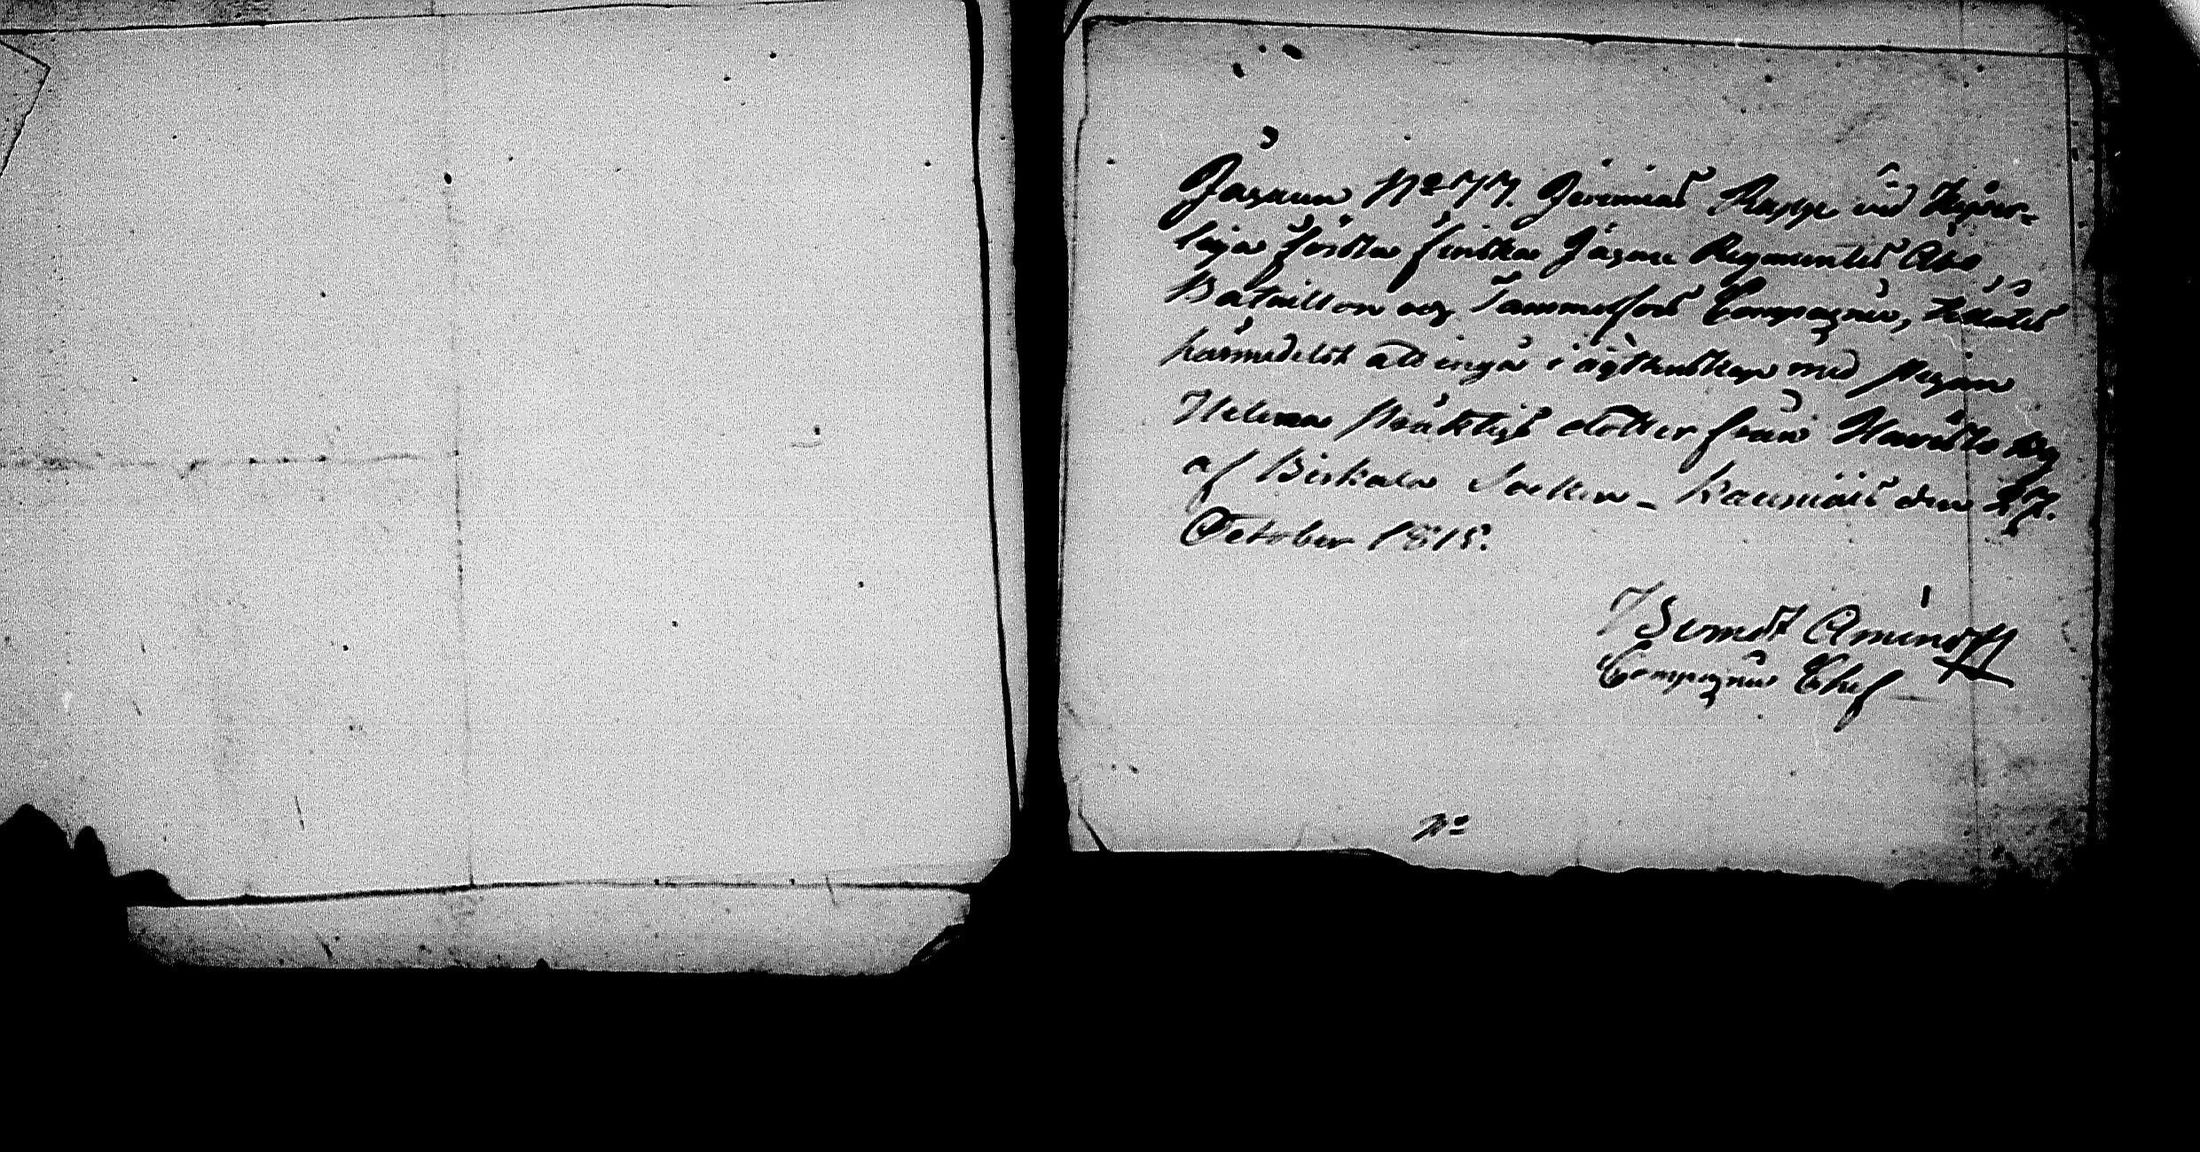 Jägarn No 77. Jeremias Rapp vid Kejser-
liga Första finska Jägare Regementets Åbo
Bataillon och Tammerfors Compagnie, tillåtes
härmedelst att ingå i ägtenskap med Pigan
Helena Mattsdotter från Haristo By
af Birkala Socken - den 27.
October 1815.
Berndt Aminoff
Compagnie Chef
No